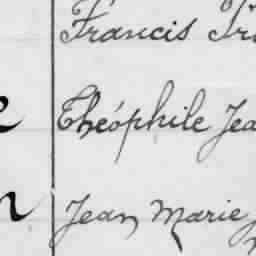 Francis
Théophile Jea
Jean Marie